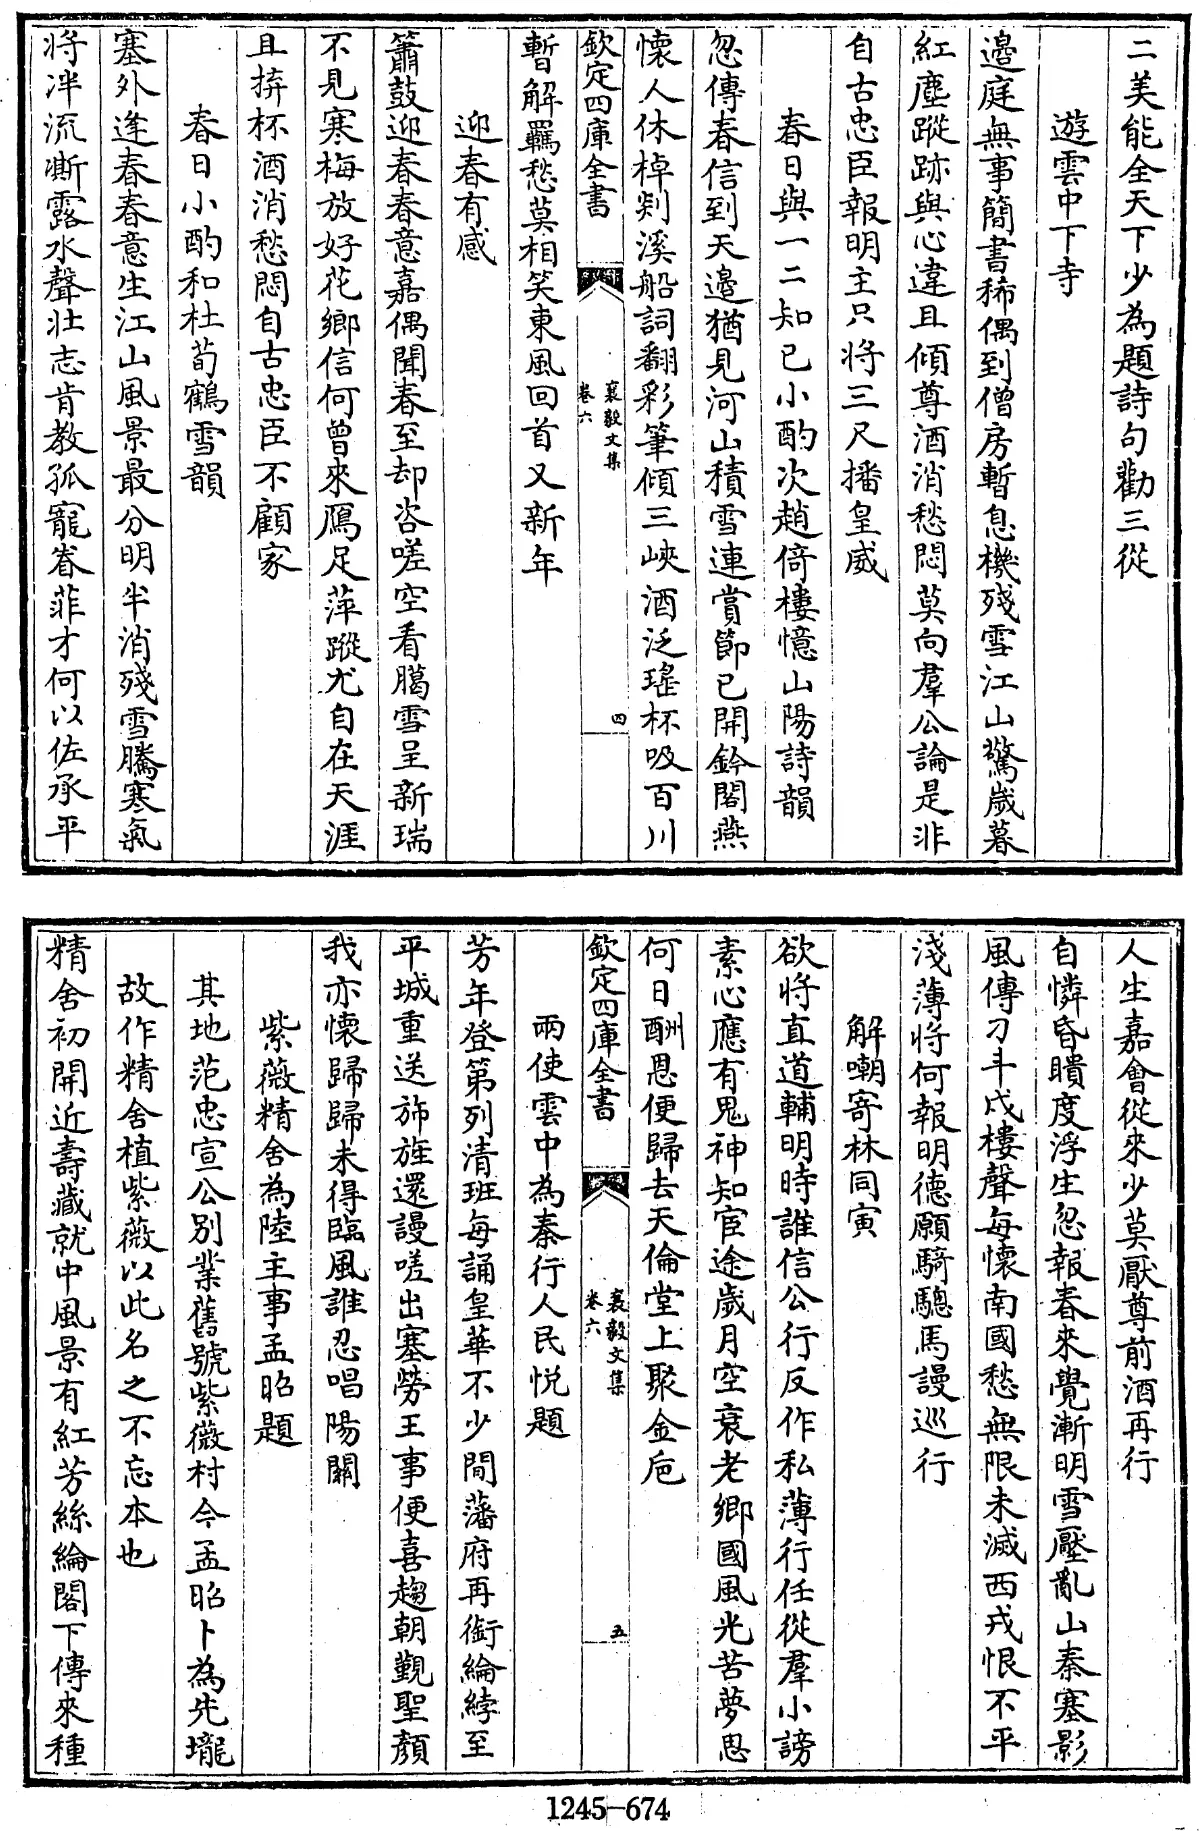 二美能全天下少為題詩句勸三從
遊雲中下寺
邉庭無事簡書稀偶到僧房暫息機殘雪江山驚嵗暮
紅塵蹤跡與心違且傾尊酒消愁悶莫向羣公論是非
自古忠臣報明主只將三尺播皇威
春日與一二知已小酌次趙倚樓憶山陽詩韻
忽傳春信到天邉猶見河山積雪連賞節已開鈴閣燕
懐人休棹剡溪船詞翻彩筆傾三峽酒泛瑤杯吸百川
欽定四庫全書
襄毅文集
卷六
四
暫解羈愁莫相笑東風回首又新年
迎春有感
簫鼓迎春春意嘉偶聞春至却咨嗟空看臈雪呈新瑞
不見寒梅放好花鄉信何曾來鴈足萍蹤尤自在天涯
且拚杯酒消愁悶自古忠臣不顧家
春日小酌和杜荀鶴雪韻
塞外逢春春意生江山風景最分明半消殘雪騰寒氣
將泮流澌露水聲壯志肯教孤寵眷菲才何以佐承平
人生嘉會從來少莫厭尊前酒再行
自憐昏瞶度浮生忽報春來覺漸明雪壓亂山秦塞影
風傳刁斗戍樓聲每懐南國愁無限未滅西戎恨不平
淺薄將何報明德願騎驄馬謾巡行
解嘲寄林同寅
欲將直道輔明時誰信公行反作私薄行任從羣小謗
素心應有鬼神知宦途嵗月空衰老鄉國風光苦夢思
何日酬恩便歸去天倫堂上聚金巵
欽定四庫全書
襄毅文集
卷六
五
兩使雲中為秦行人民悅題
芳年登第列清班每誦皇華不少閒藩府再銜綸綍至
平城重送斾旌還謾嗟出塞勞王事便喜趨朝覲聖顏
我亦懐歸歸未得臨風誰忍唱陽關
紫薇精舍為陸主事孟昭題
其地范忠宣公别業舊號紫薇村今孟昭卜為先壠
故作精舍植紫薇以此名之不忘本也
精舍初開近壽藏就中風景有紅芳絲綸閣下傳來種
1245-674